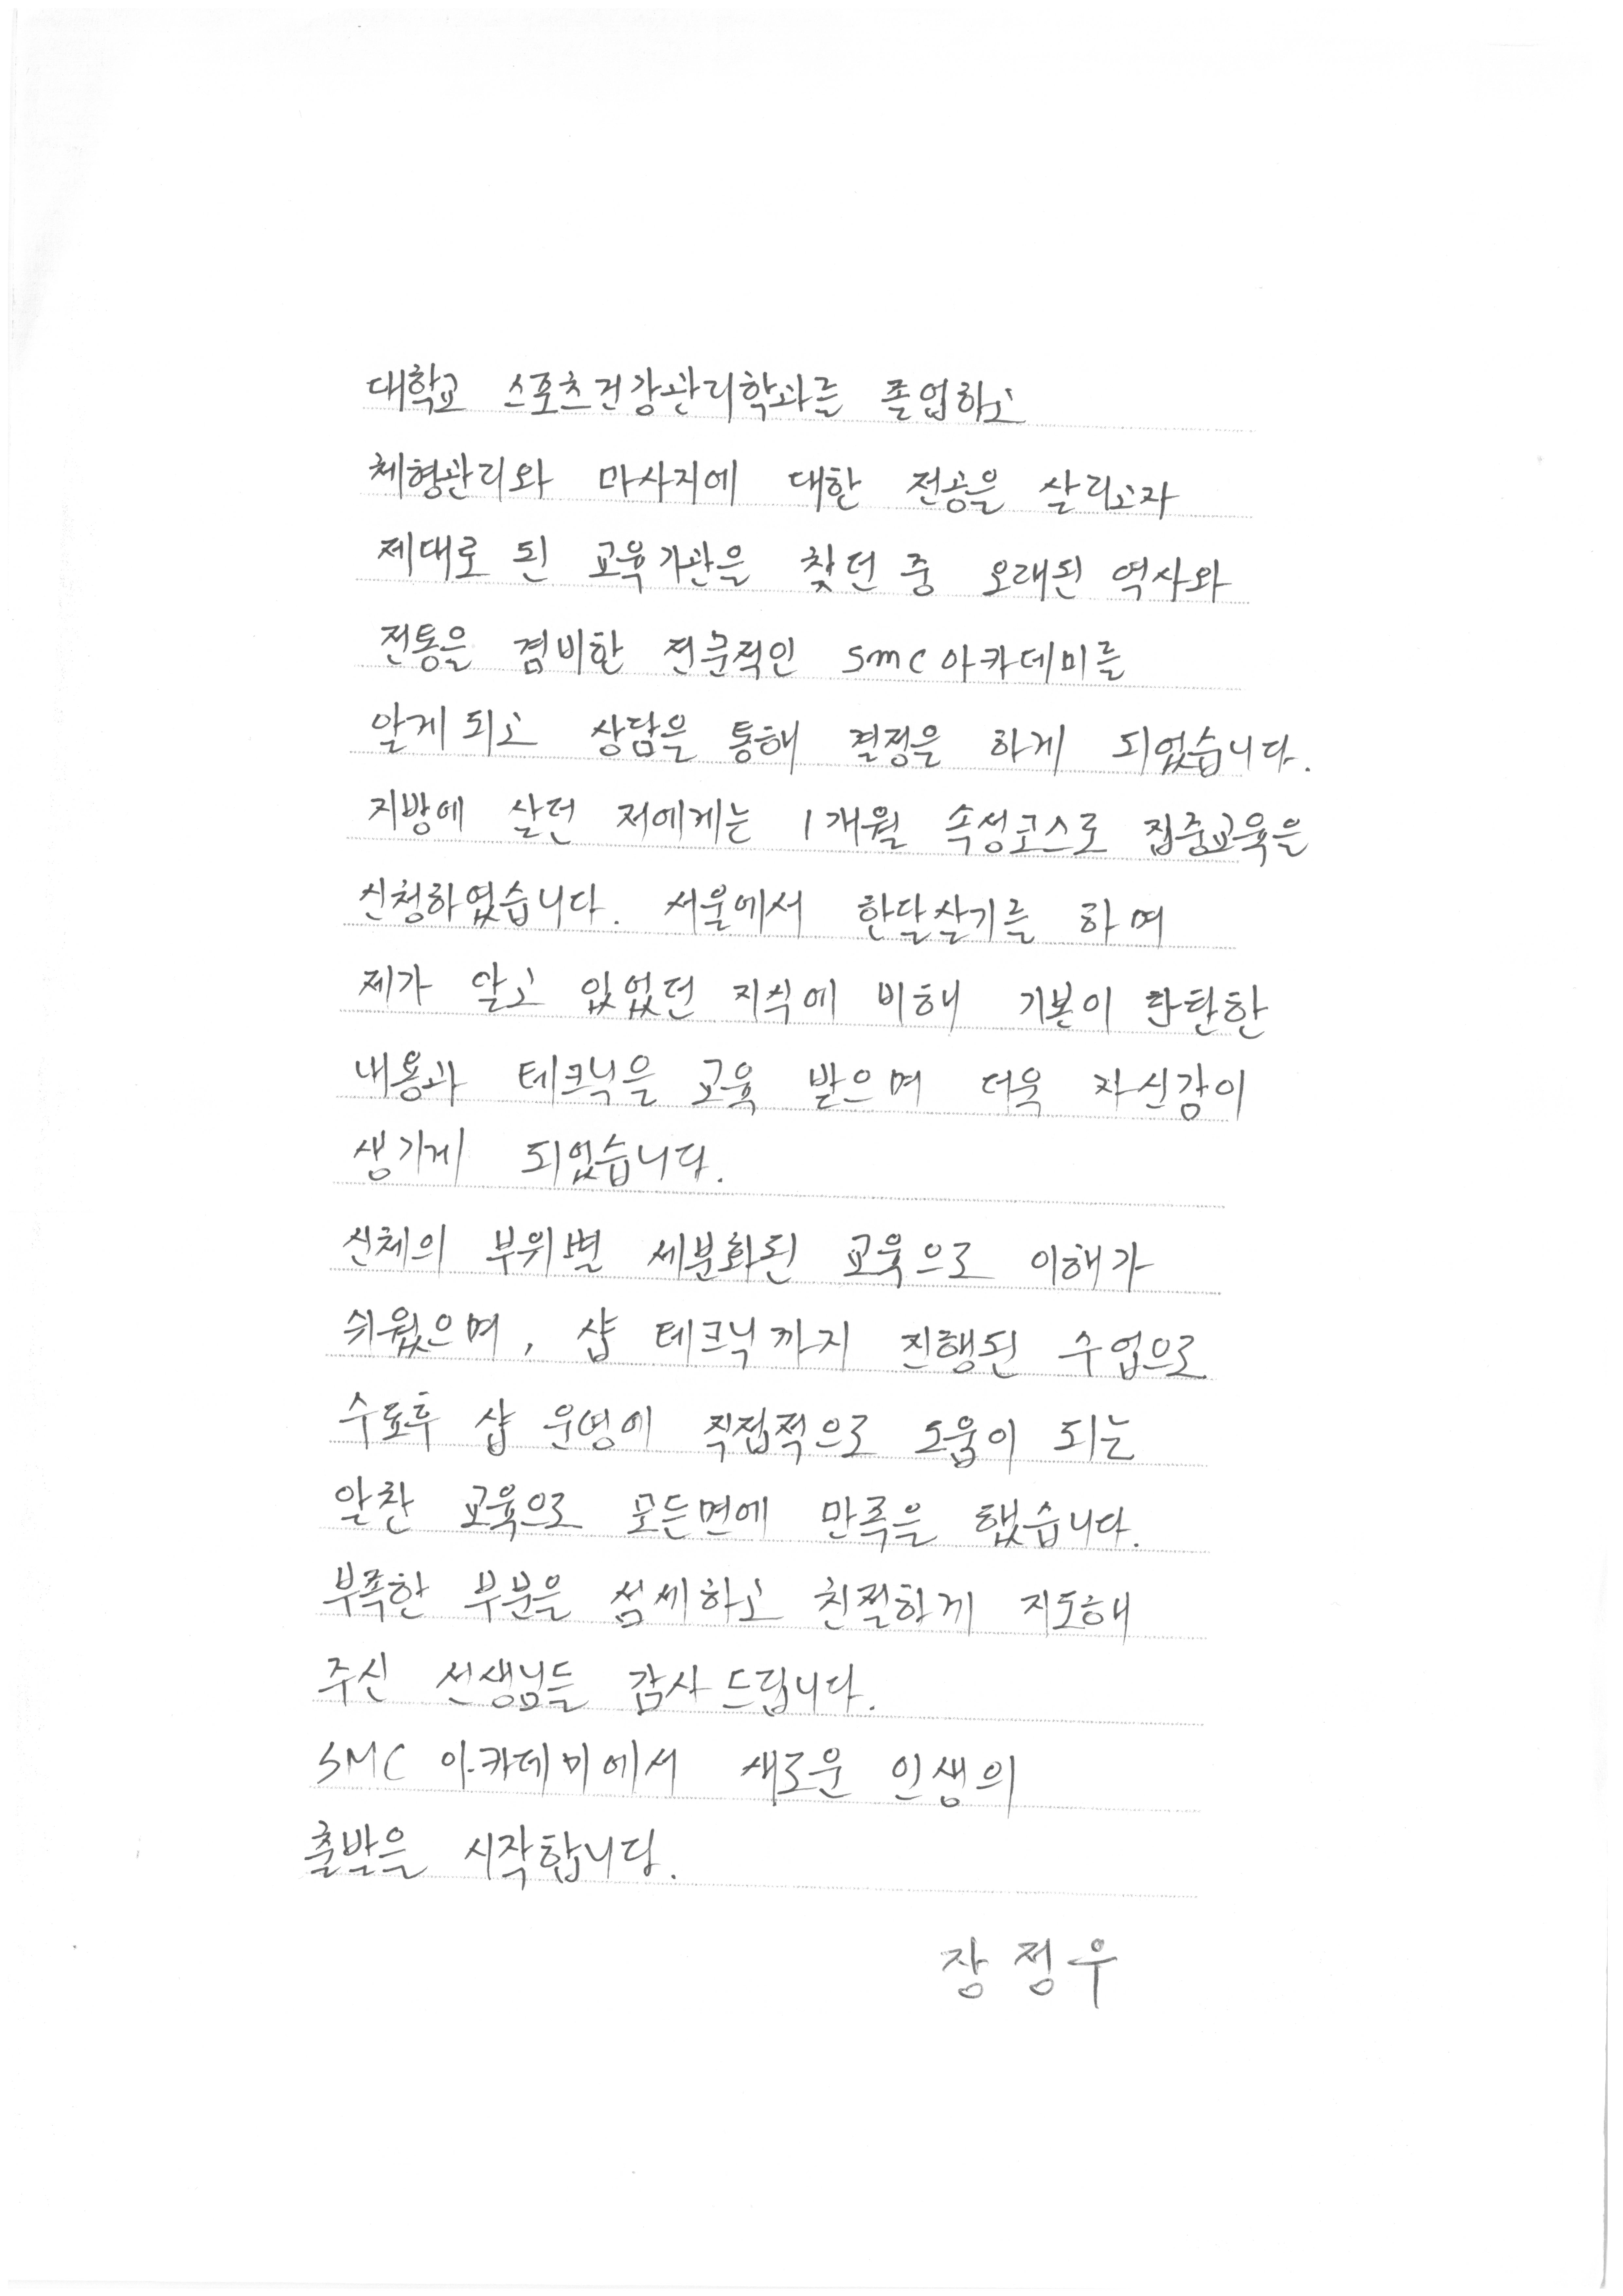 대학교 스포츠건강관리학과를 졸업하고
체형관리와 마사지에 대한 전공을 살리고자
제대로 된 교육기관을 찾던 중 오래된 역사와
전통을 겸비한 전문적인 smc아카데미를
알게되고 상담을 통해 결정을 하게 되었습니다.
지방에 살던 저에게는 1개월 속성코스로 집중교육을
신청하였습니다. 서울에서 한달살기를 하며
제가 알고 있었던 지식에 비해 기본이 탄탄한
내용과 테크닉을 교육 받으며 더욱 자신감이
생기게 되었습니다.
신체의 부위별 세분화된 교육으로 이해가
쉬웠으며, 샵 테크닉까지 진행된 수업으로
수료후 샵 운영에 직접적으로 도움이 되는
알찬 교육으로 모든면에 만족을 했습니다.
부족한 부분을 섬세하고 친절하게 지도해
주신 선생님들 감사드립니다.
SMC 아카데미에서 새로운 인생의
출발을 시작합니다.
장정우